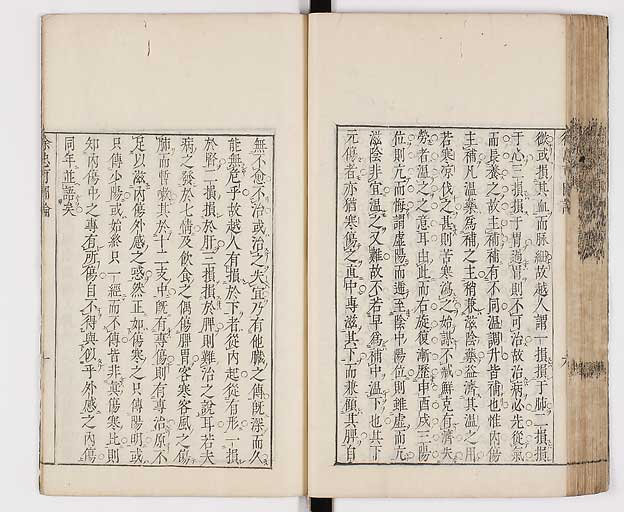 微或損其血而脉細故越人謂一損損于肺二損損
于心三損損于胃過胃則不可治故治病必先從氣
而長養之故主補補有不同溫調升皆補也惟內傷
主補凡溫藥爲補之主稍兼滋陰藥益濟其溫之用
若寒凉伐之甚則苦寒瀉之殆謀不臧鮮克有濟矣
勞者溫之之意耳由此而右旋復漸歷申酉戌三陽
位則亢而悔謂虛陽而進至陰中陽位則雖虛而元
滋陰非宜溫之又難故不若早爲補中溫下也其下
元傷者亦猶寒傷之直中專滋其下而兼顧其脾自
無不愈不治或治之失宜乃有他臟之傳旣深而久
能無危乎故越人有損於下者從內起從有形一損
於腎二損損於肝三損損於脾則難治之說耳若夫
病之發於七情及飲食之偶傷脾胃客寒客風之傷
肺而暫嗽其於十二支中旣有專傷則有專治原不
足以滋內傷外感之惑然正如傷寒之只傳陽明或
只傳少陽或始終只一經而不傳皆非真傷寒比則
知內傷中之專有所傷自不得與似乎外感之內傷
同年並語矣